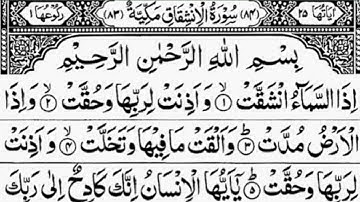 اٰیَاتُهَا ٢٥ (٨٤) سُوْرَةُ الْاِنْشِقَاقِ مَكِّيَّةٌ (٨٣) رُكُوْعُهَا ١
بِسْمِ اللّٰهِ الرَّحْمٰنِ الرَّحِیْمِ
اِذَا السَّمَآءُ انْشَقَّتْ ۙ﴿١﴾ وَ اَذِنَتْ لِرَبِّهَا وَ حُقَّتْ ۙ﴿٢﴾ وَ اِذَا
الْاَرْضُ مُدَّتْ ؕ﴿٣﴾ وَ اَلْقَتْ مَا فِیْهَا وَ تَخَلَّتْ ۙ﴿٤﴾ وَ اَذِنَتْ
لِرَبِّهَا وَ حُقَّتْ ؕ﴿٥﴾ یٰۤاَیُّهَا الْاِنْسَانُ اِنَّكَ كَادِحٌ اِلٰی رَبِّكَ